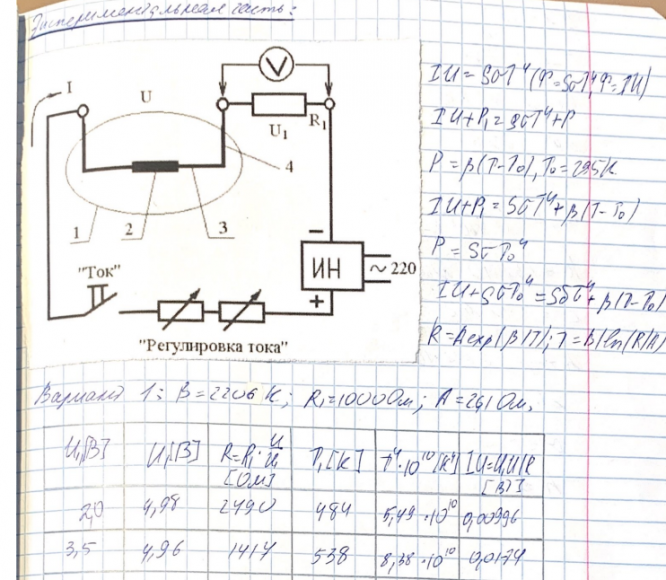 Экспериментальная часть:
I
U
V
U₁
R₁
4
1
2
3
"Ток"
−
ИН
~ 220
+
"Регулировка тока"
IU = SσT⁴ (Φ=SσT⁴, Φ=IU)
IU+P₁ = SσT⁴+P
P = β(T-T₀), T₀ = 295K
IU+P₁ = SσT⁴+β(T-T₀)
P = SσT₀⁴
IU+SσT₀⁴ = SσT⁴+β(T-T₀)
R = Aexp(B/T); T = B/ln(R/A)
Вариант 1: B = 2206 K; R₁ = 1000 Ом; A = 26,1 Ом.
U₁[В] U,[В] R=R₁·U/U₁ [Ом] T,[K] T⁴·10¹⁰[K⁴] IU=U₁U/R [Вт]
2,0 4,98 2490 484 5,49·10¹⁰ 0,00996
3,5 4,96 1417 538 8,38·10¹⁰ 0,0174